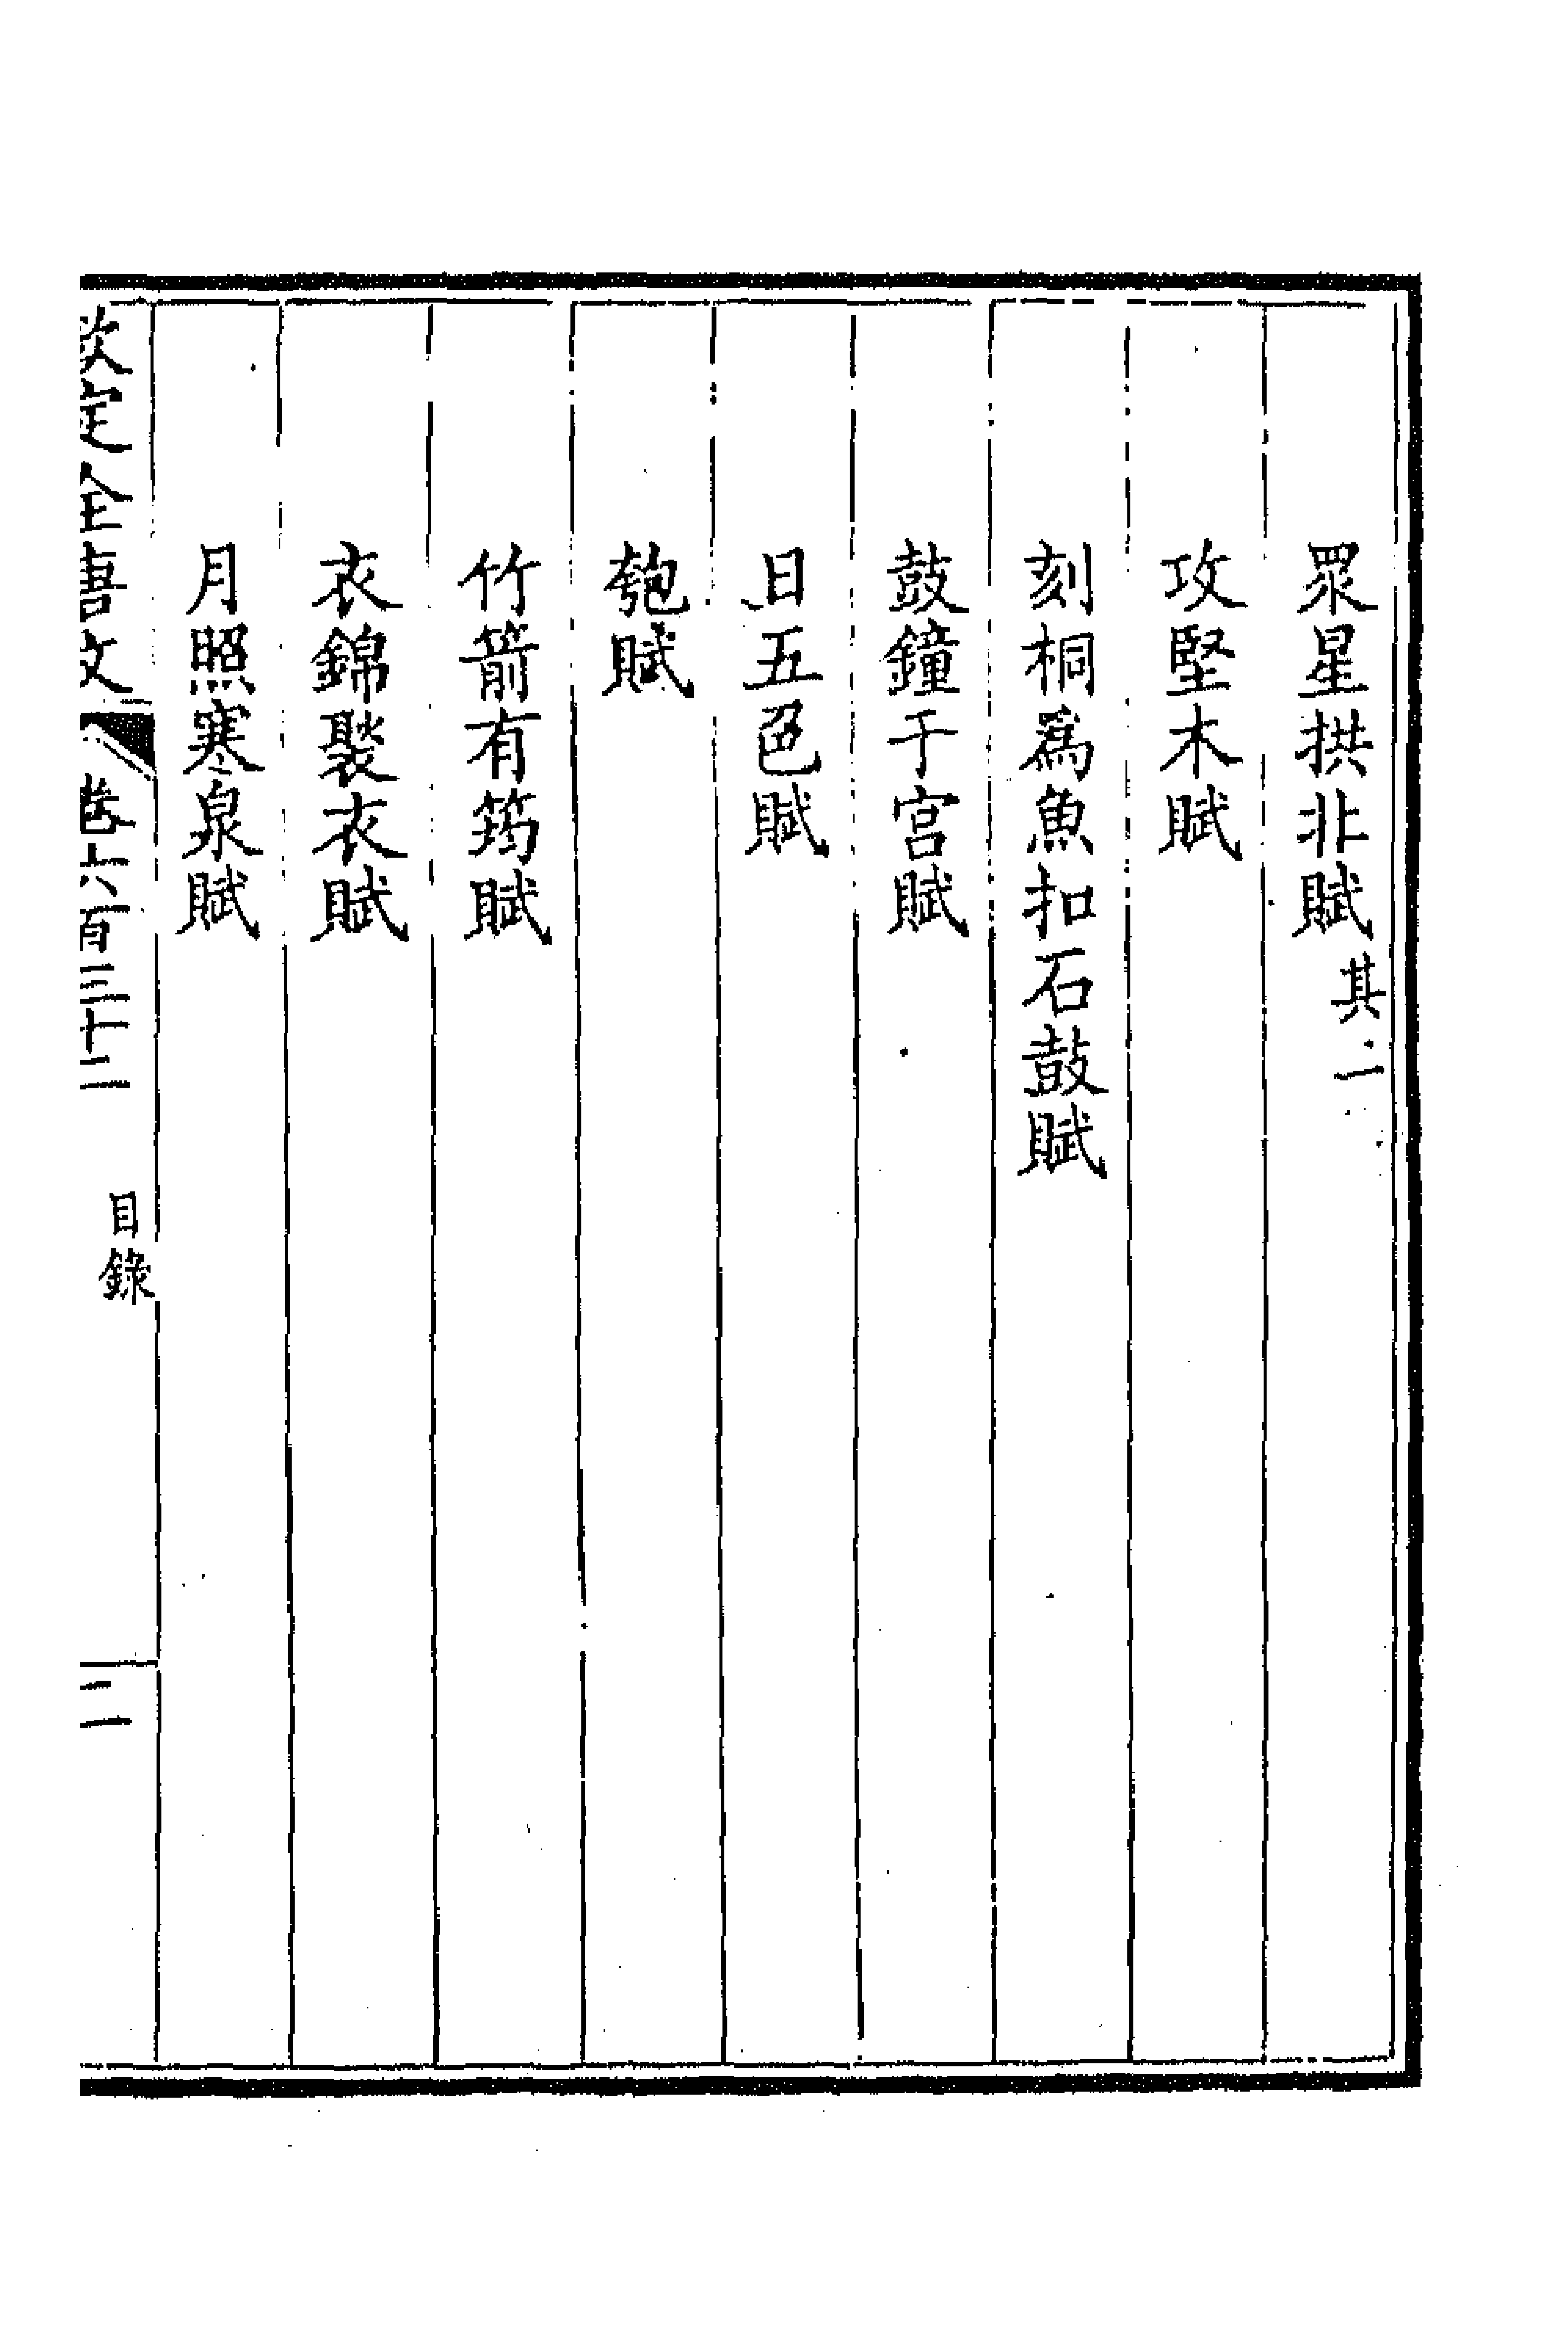 眾星拱北賦 其二
攻堅木賦
刻桐爲魚扣石鼓賦
鼓鐘于宮賦
日五色賦
匏賦
竹箭有筠賦
衣錦褧衣賦
月照寒泉賦
欽定全唐文 卷六百三十二 目錄 二